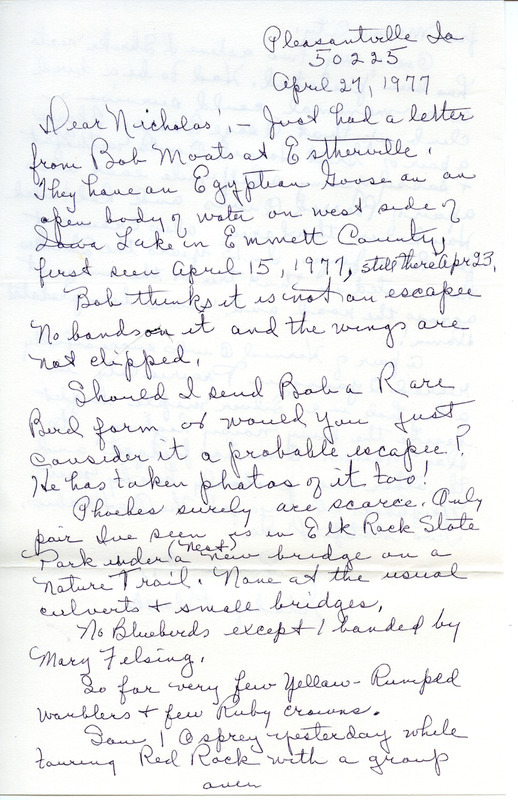 Pleasantville Ia
50225
April 27, 1977
Dear Nicholas', - Just had a letter
from Bob Moats at Estherville.
They have an Egyptian Goose on an
open body of water on west side of
Iowa Lake in Emmett County,
first seen April 15, 1977, still there Apr 23.
Bob thinks it is not an escapee
No bands on it and the wings are
not clipped.
Should I send Bob a Rare
Bird form or would you just
consider it a probable escapee?
He has taken photos of it too!
Phoebes surely are scarce. Only
pair I've seen is in Elk Rock State
Park under a (nest) new bridge on a
Nature Trail. None at the usual
culverts + small bridges.
No Bluebirds except 1 banded by
Mary Felsing.
So far very few Yellow-Rumped
Warblers + few Ruby crowns.
Saw 1 Osprey yesterday while
touring Red Rock with a group
over